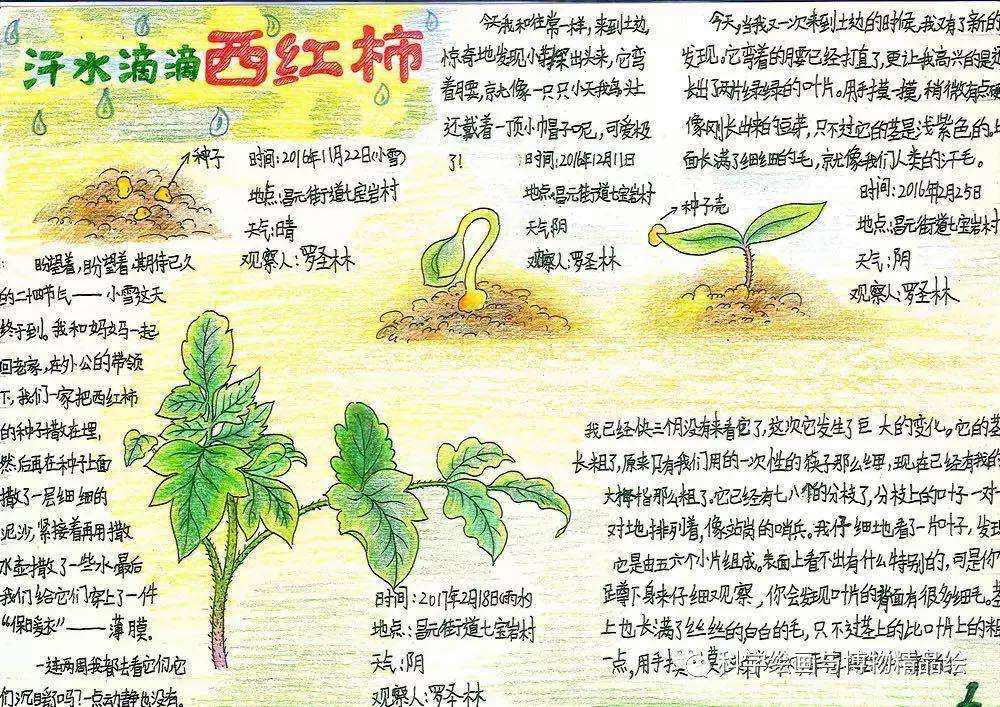 汗水滴滴西红柿
种子
时间:2016年11月22日(小雪)
地点:昌元街道七宝岩村
天气:晴
观察人:罗圣林
盼望着,盼望着,期待已久
的二十四节气——小雪这天
终于到。我和妈妈一起
回老家,在外公的带领
下,我们一家把西红柿
的种子撒在埋,
然后再在种子上面
撒了一层细细的
泥沙,紧接着再用撒
水壶撒了一些水,最后
我们给它们穿上了一件
“保暖衣”——薄膜。
一连两周我都去看它们,它
们沉睡吗?一点动静也没有。
今天我和往常一样,来到土边,
惊奇地发现小芽探出头来,它弯
着腰,就像一只只小天鹅头上
还戴着一顶小帽子呢,可爱极
了!
时间:2016年12月11日
地点:昌元街道七宝岩村
天气:阴
观察人:罗圣林
今天,当我又一次来到土边的时候,我又有了新的
发现。它弯着的腰已经打直了,更让我高兴的是
长出了两片绿绿的叶片。用手摸一摸,稍微有点硬
像刚长出来的豆芽,只不过它的茎是浅紫色的。
面长满了细细的毛,就像我们人类的汗毛。
种子壳
时间:2016年2月25日
地点:昌元街道七宝岩村
天气:阴
观察人:罗圣林
我已经快三个月没有来看它了,这次它发生了巨大的变化。它的茎
长粗了,原来只有我们用的一次性的筷子那么细,现在已经有我的
大拇指那么粗了。它已经有七八个的分枝了,分枝上的叶子一对
对地排列着,像站岗的哨兵。我仔细地看了一片叶子,发
它是由五六个小片组成。表面上看不出有什么特别的,可是你
蹲下身来仔细观察,你会发现叶片的背面有很多细毛。茎
上也长满了丝丝的白白的毛,只不过茎上的比叶片上的粗
一点,用手去摸
时间:2017年2月18日(雨水)
地点:昌元街道七宝岩村
天气:阴
观察人:罗圣林
科学绘画与博物精品绘
1